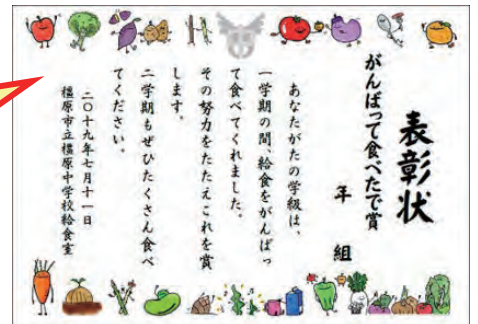 表彰状
がんばって食べたで賞
年　組
あなたがたの学級は、
一学期の間、給食をがんばっ
て食べてくれました。
その努力をたたえこれを賞
します。
二学期もぜひたくさん食べ
てください。
二〇十九年七月十一日
橿原市立橿原中学校給食室